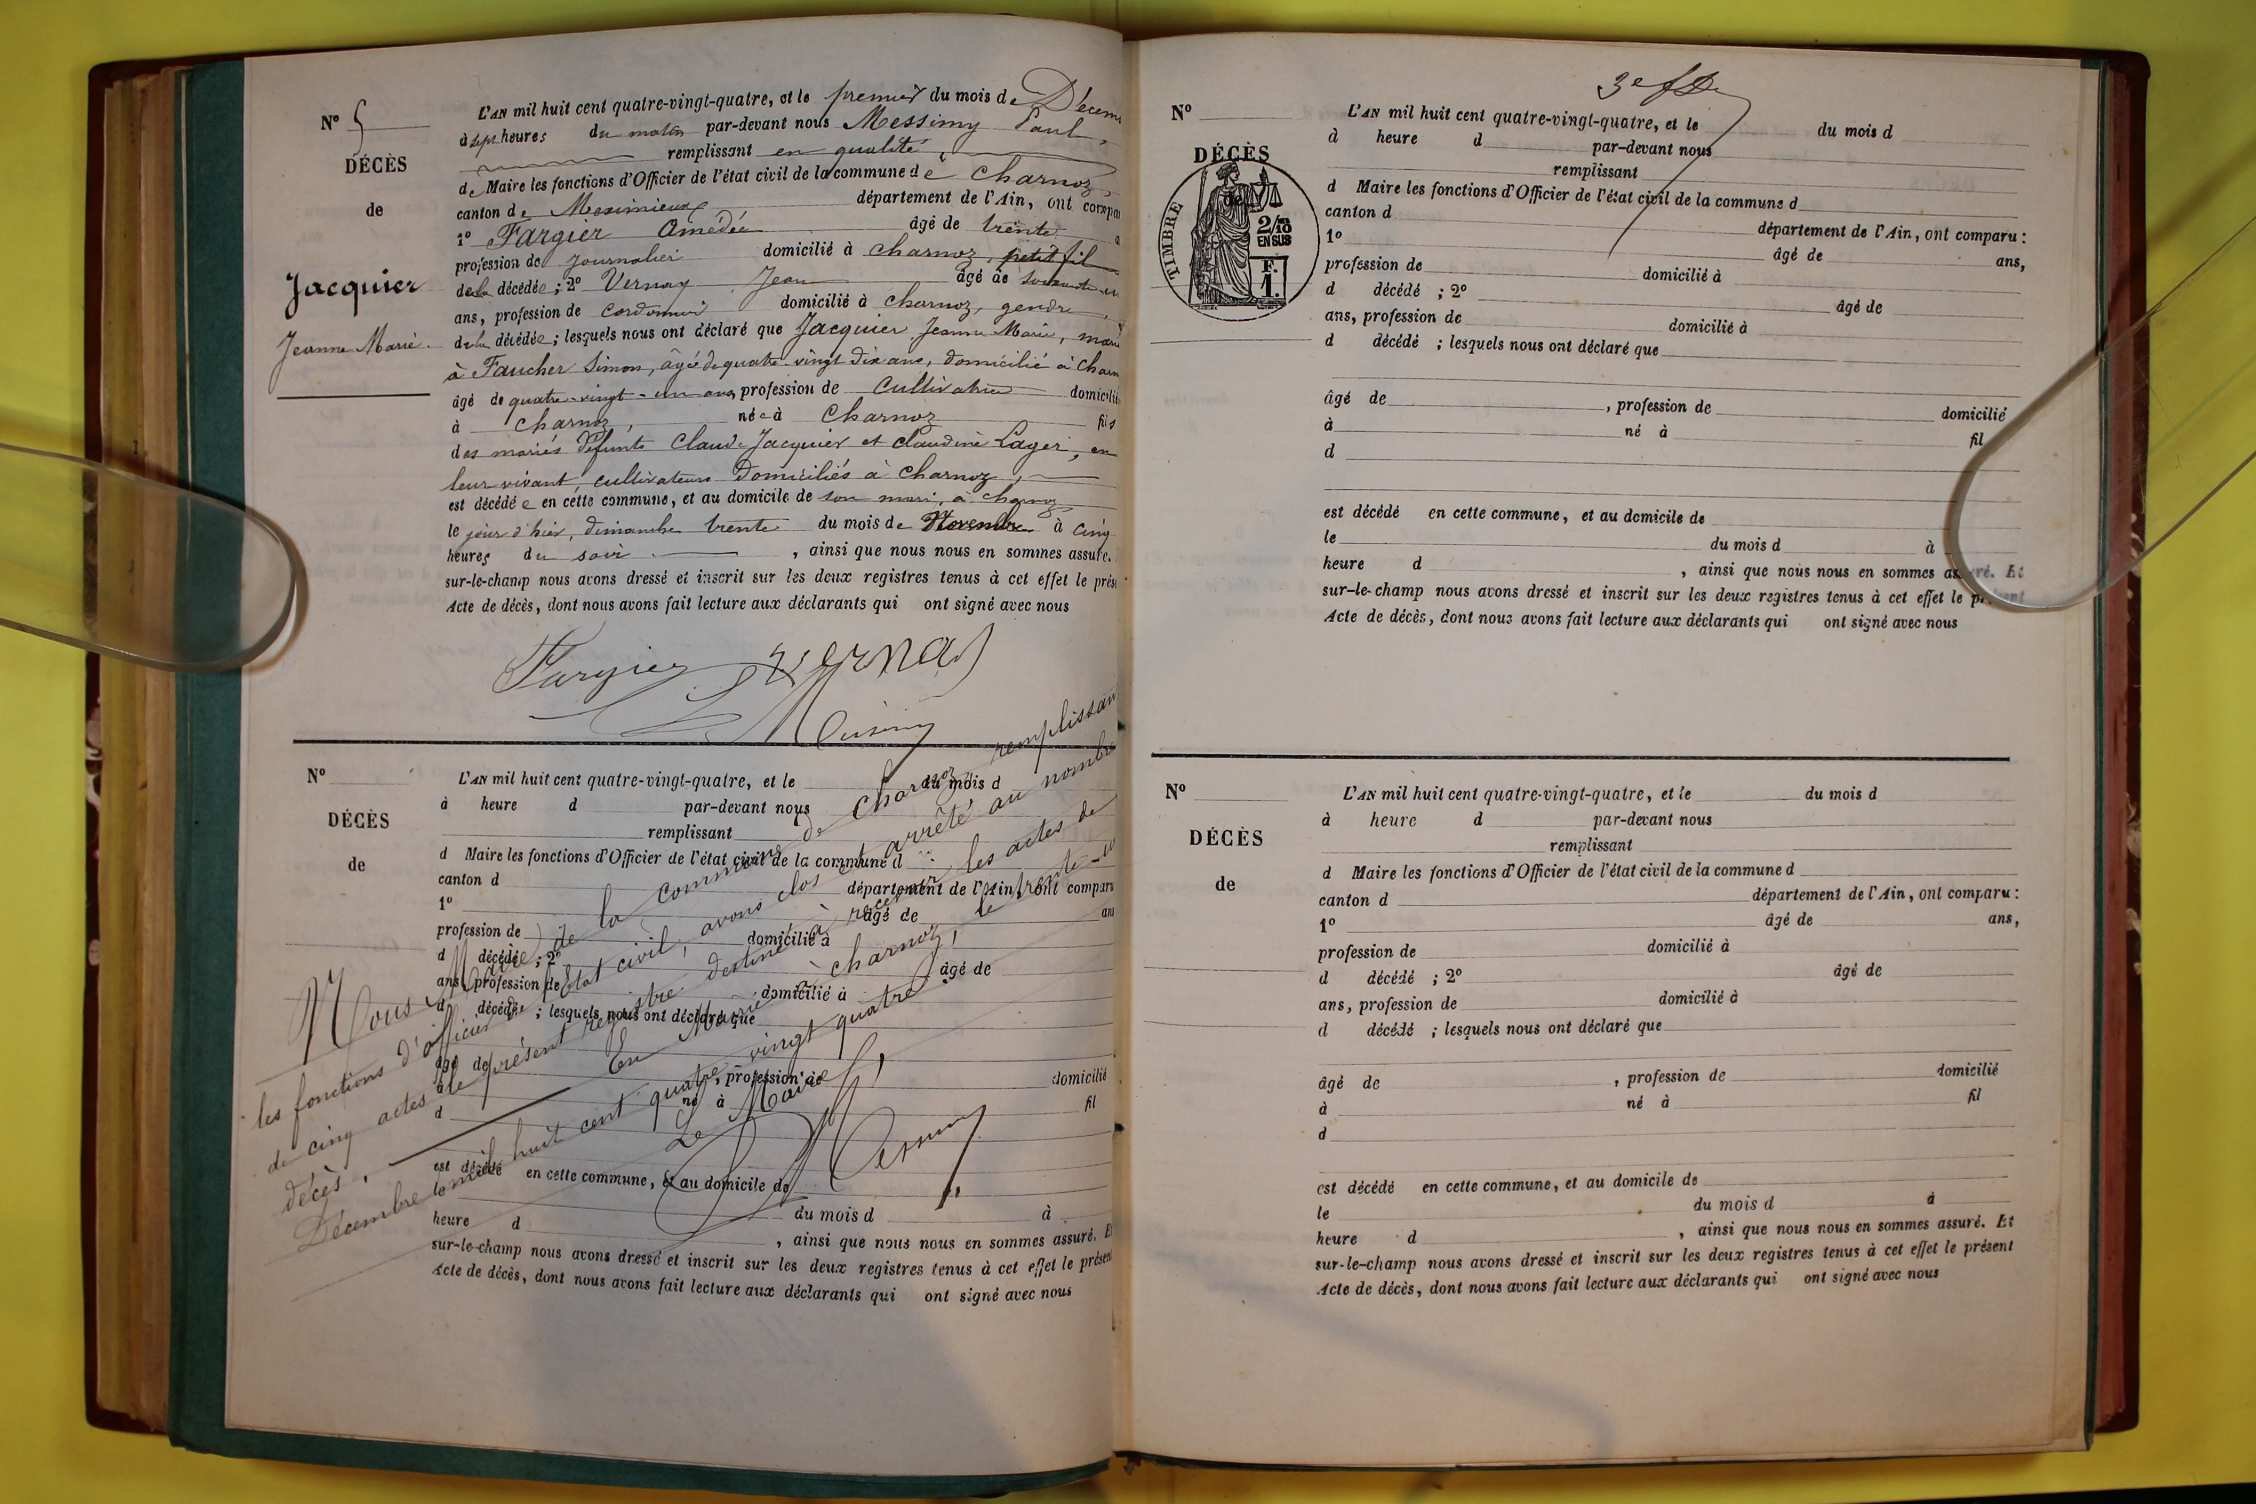 N° 5
DÉCÈS
de
Jacquier
Jeanne Marie
L'AN mil huit cent quatre-vingt-quatre, et le premier du mois de Décem
à sept heures du matin par-devant nous Messimy Paul,
remplissant en qualité
de Maire les fonctions d'Officier de l'état civil de la commune de Charnoz,
canton de Meximieux département de l'Ain, ont compa
1° Fargier Amédée âgé de trente
profession de journalier domicilié à Charnoz, petit fil
de la décédée ; 2° Vernay Jean âgé de soixante un
ans, profession de cordonnier domicilié à Charnoz, gendre
de la décédée ; lesquels nous ont déclaré que Jacquier Jeanne Marie, mari
à Faucher Simon, âgé de quatre-vingt dix ans, domicilié à Charn
âgé de quatre-vingt-un ans, profession de Cultivatrice domicilié
à Charnoz, née à Charnoz fils
des mariés défunts Claude Jacquier et Claudine Lager, en
leur vivant, cultivateurs domiciliés à Charnoz,
est décédée en cette commune, et au domicile de son mari, à Charnoz
le jour d'hier, dimanche trente du mois de Novembre à cinq
heures du soir, ainsi que nous nous en sommes assuré.
sur-le-champ nous avons dressé et inscrit sur les deux registres tenus à cet effet le prése
Acte de décès, dont nous avons fait lecture aux déclarants qui ont signé avec nous
Fargier Vernay
Messimy
N°
DÉCÈS
de
L'AN mil huit cent quatre-vingt-quatre, et le du mois d
à heure d par-devant nous
remplissant
d Maire les fonctions d'Officier de l'état civil de la commune d
canton d département de l'Ain, ont comparu
1° âgé de ans
profession de domicilié à
d décédé ; 2° âgé de
ans, profession de domicilié à
d décédé ; lesquels nous ont déclaré que
âgé de , profession de domicilié
à né à fil
d
est décédé en cette commune, et au domicile de
le du mois d à
heure d , ainsi que nous nous en sommes assuré. Et
sur-le-champ nous avons dressé et inscrit sur les deux registres tenus à cet effet le présent
Acte de décès, dont nous avons fait lecture aux déclarants qui ont signé avec nous
Nous, Maire de la commune de Charnoz, remplissant
les fonctions d'officier de l'état civil, avons clos et arrêté au nombre
de cinq actes le présent registre destiné à recevoir les actes de
décès. En Mairie à Charnoz, le trente-un
Décembre mil huit cent quatre vingt quatre
Le Maire,
Messimy
3e f
N°
DÉCÈS
de
TIMBRE
2/10
EN SUS
F.
1.
L'AN mil huit cent quatre-vingt-quatre, et le du mois d
à heure d par-devant nous
remplissant
d Maire les fonctions d'Officier de l'état civil de la commune d
canton d département de l'Ain, ont comparu :
1° âgé de ans,
profession de domicilié à
d décédé ; 2° âgé de
ans, profession de domicilié à
d décédé ; lesquels nous ont déclaré que
âgé de , profession de domicilié
à né à fil
d
est décédé en cette commune, et au domicile de
le du mois d à
heure d , ainsi que nous nous en sommes assuré. Et
sur-le-champ nous avons dressé et inscrit sur les deux registres tenus à cet effet le présent
Acte de décès, dont nous avons fait lecture aux déclarants qui ont signé avec nous
N°
DÉCÈS
de
L'AN mil huit cent quatre-vingt-quatre, et le du mois d
à heure d par-devant nous
remplissant
d Maire les fonctions d'Officier de l'état civil de la commune d
canton d département de l'Ain, ont comparu :
1° âgé de ans,
profession de domicilié à
d décédé ; 2° âgé de
ans, profession de domicilié à
d décédé ; lesquels nous ont déclaré que
âgé de , profession de domicilié
à né à fil
d
est décédé en cette commune, et au domicile de
le du mois d à
heure d , ainsi que nous nous en sommes assuré. Et
sur-le-champ nous avons dressé et inscrit sur les deux registres tenus à cet effet le présent
Acte de décès, dont nous avons fait lecture aux déclarants qui ont signé avec nous